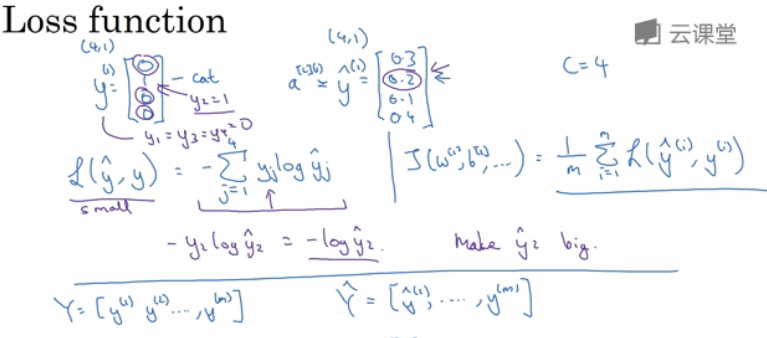 Loss function
云课堂
(4,1)
(4,1)
y⁽¹⁾ = [0 1 0 0] - cat
y₂ = 1
y₁ = y₃ = y₄ = 0
a^[L](1) = ŷ⁽¹⁾ = [0.3 0.2 0.1 0.4]
C = 4
ℒ(ŷ, y) = - ∑_{j=1}^{4} y_j log ŷ_j
small
J(w^[1], b^[1], ...) = 1/m ∑_{i=1}^{m} ℒ(ŷ⁽ⁱ⁾, y⁽ⁱ⁾)
- y₂ log ŷ₂ = - log ŷ₂. Make ŷ₂ big.
Y = [y⁽¹⁾ y⁽²⁾ ..., y⁽ᵐ⁾]
Ŷ = [ŷ⁽¹⁾, ...., y⁽ᵐ⁾]